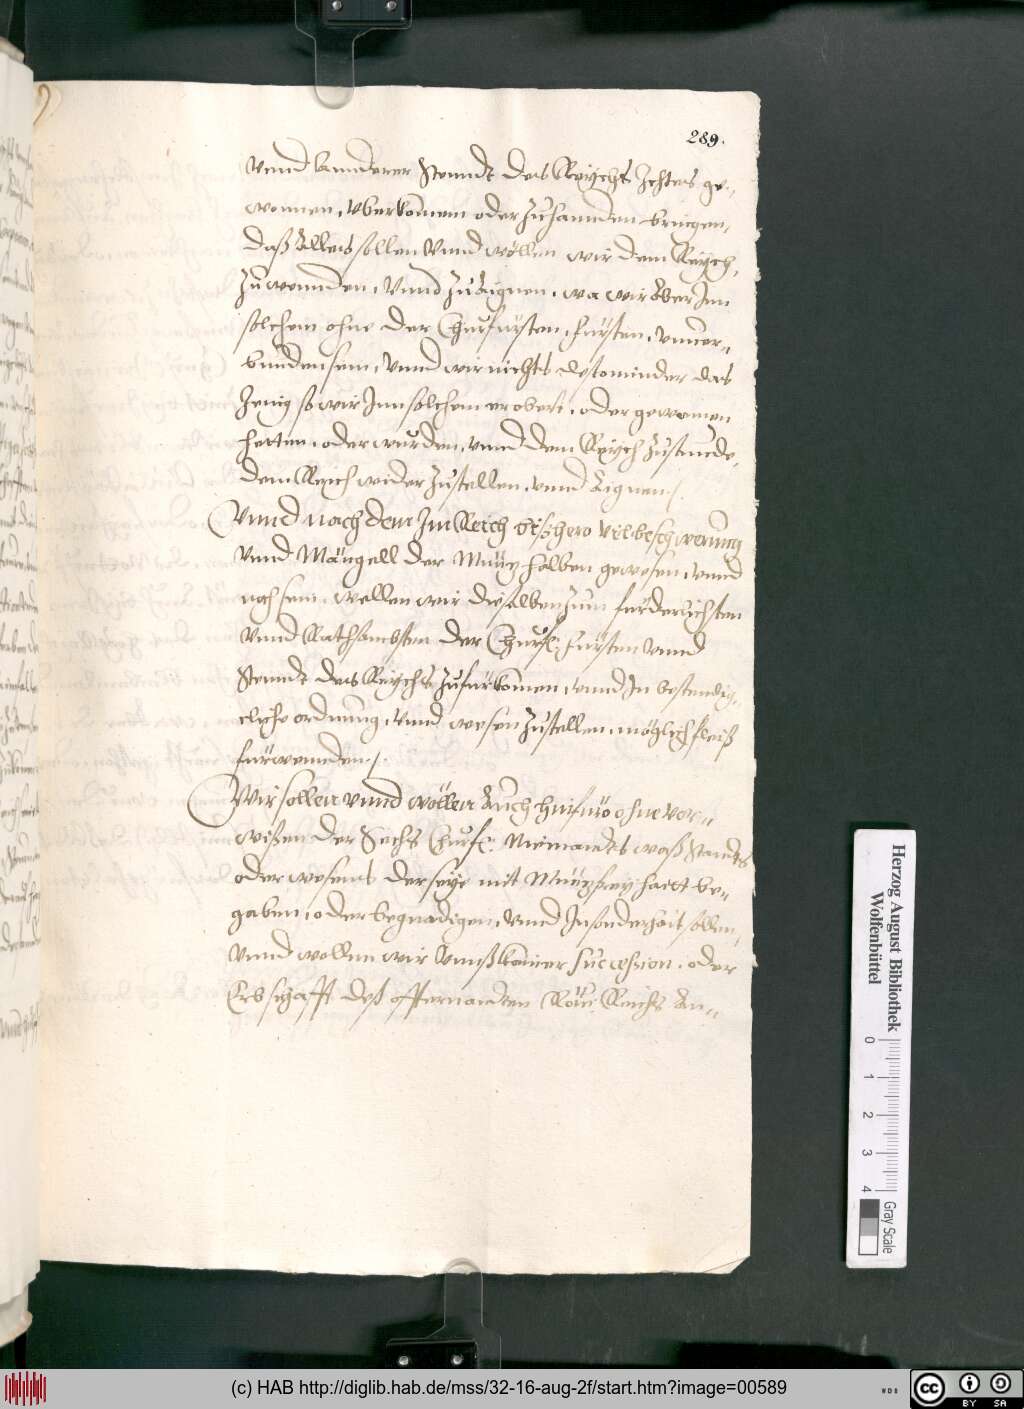 289.
vnnd Annderer Stenndt des Reychs Ichtes ge„
wonnen, vberkomen oder zusamnden bringen,
daß Alles sollen vnnd wöllen wir dem Reych,
zuwennden, vnnd zuaignen, wa wir Aber Inn
solchem ohne der Churfürsten, fürsten, vnuer„
bunden sein, vnnd wir nichts destominder das
Jenig so wir Inn solchem erobert, oder gewonnen
hetten, oder wurden, vnnd dem Reych zustunde,
dem Reich wider zustellen, vnnd Aignen /.
Vnnd nach dem Im Reich bißhero vil beschwerung
vnnd Mängell der Müntz halben gewesen, vnnd
noch sein, wellen wir dieselben zum fürderlichsten
vnnd Rathsambsten der Churf: fürsten vnnd
Stendt des Reychs zufürkomen, vnnd In bestendig„
cliche ordnung, vnnd wesen zustellen, möglich fleiß
fürwennden /.
Wir sollen vnnd wöllen Auch hinfüro ohne vor„
wißen der Sechs Churf: Niemandts waß Standts
oder wesens der seye mit Müntzfreyhait be„
gaben, oder begnadigen, vnnd Insonderhait sollen,
vnnd wollen wir Vnnß keiner Succession, oder
Erbschafft deß offternandten Röm: Reichs An„
Herzog August Bibliothek
Wolfenbüttel
0 1 2 3 4
Gray Scale
(c) HAB http://diglib.hab.de/mss/32-16-aug-2f/start.htm?image=00589
WDB
cc BY SA